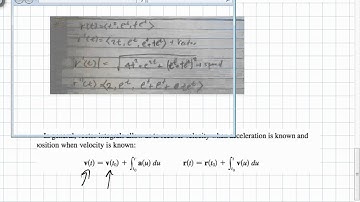 r(t)=⟨t², eᵗ, teᵗ⟩
r'(t)=⟨2t, eᵗ, eᵗ+teᵗ⟩
|r'(t)| = √4t²+e²ᵗ+(eᵗ+teᵗ)²
r"(t)=⟨2, eᵗ,
In general, vector integrals allow us to recover velocity when acceleration is known and
position when velocity is known:
v(t) = v(t₀) + ∫ₜ₀ᵗ a(u) du r(t) = r(t₀) + ∫ₜ₀ᵗ v(u) du